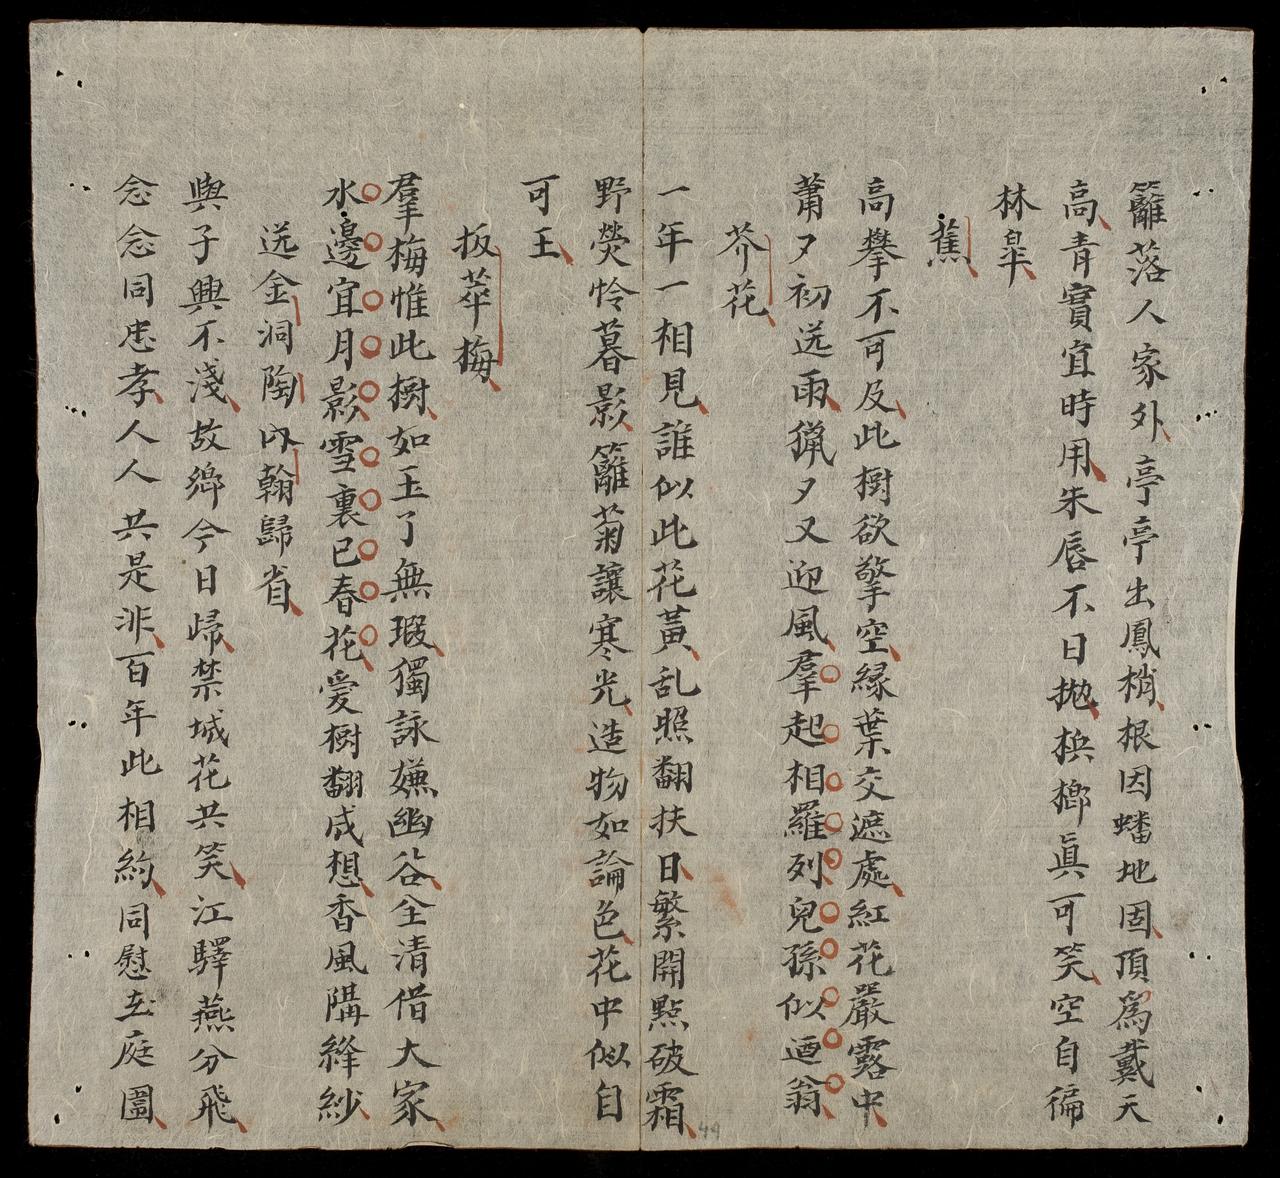 籬落人家外亭亭出鳳梢根因蟠地固頂爲戴天
高青實宜時用朱唇不日拋檳榔眞可笑空自徧
林皐
蕉
高攀不可及此樹欲擎空緑葉交遮處紅花嚴露中
蕭夕初送雨獵夕又迎風羣起相羅列兒孫似迺翁
芥花
一年一相見誰似此花黃乱照翻扶日繁開點破霜
野熒怜暮影籬菊讓寒光造物如論色花中似自
可王
扳萃梅
羣梅惟此樹如玉了無瑕獨詠嫌幽谷全清借大家
水邊宜月影雪裏已春花爱樹翻成想香風隔絳紗
送金洞陶內翰歸省
與子興不淺故鄉今日歸禁城花共笑江驛燕分飛
念念同忠孝人人共是非百年此相約同慰在庭圍